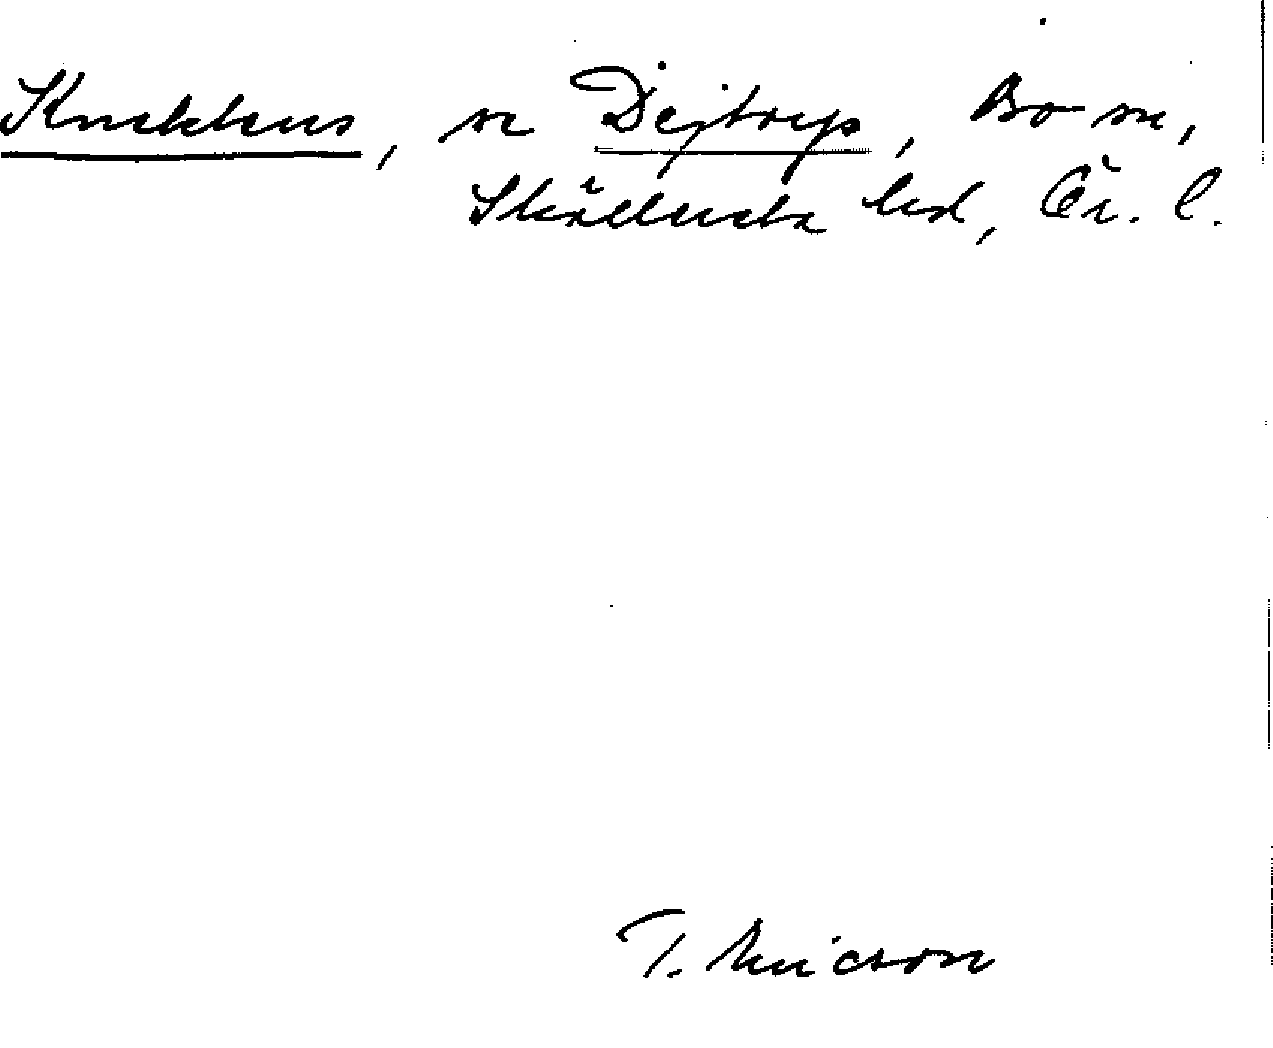 Knekthus, se Dejtorp, Bo sn,
Skällviks hd, Ör. l.
T. Ericson